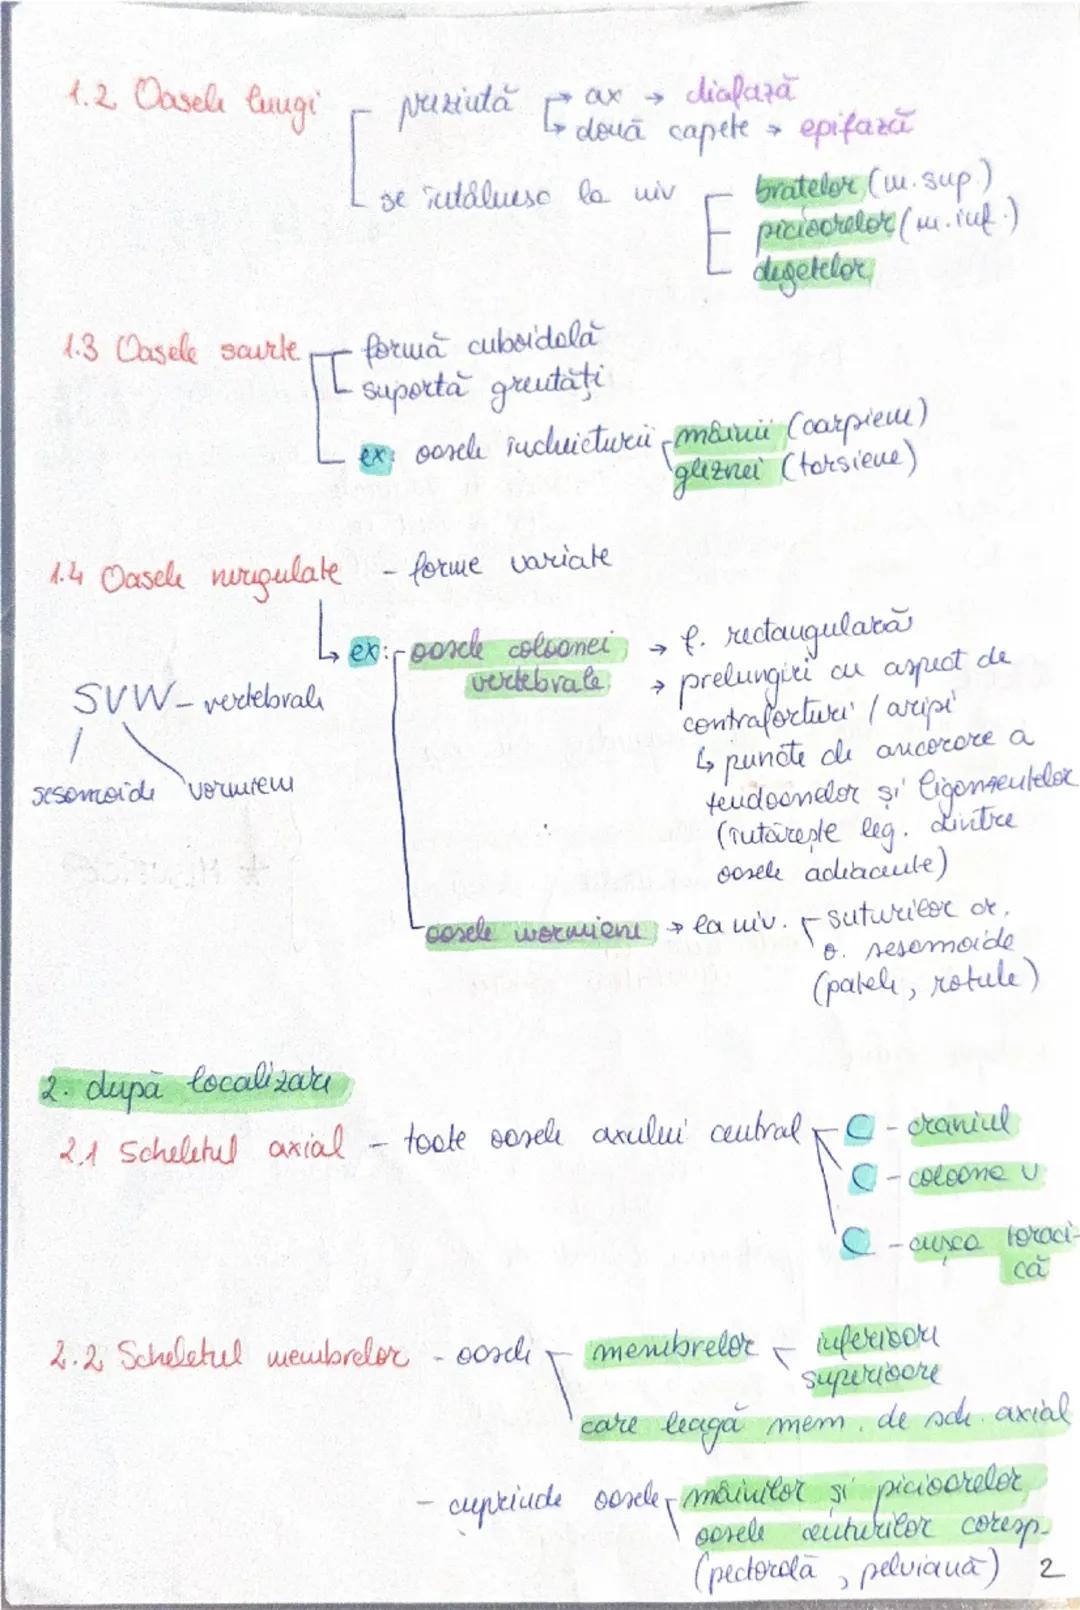 1.2 Oasele lungi
prezintă → ax → diafază
↳ două capete → epifază
se întâlnesc la niv
brațelor (m. sup.)
picioarelor (m. inf.)
degetelor
1.3 Oasele scurte
formă cuboidală
suportă greutăți
ex: oasele încheieturii
mâinii (carpiene)
gleznei (tarsiene)
1.4 Oasele neregulate - forme variate
↳ ex: oasele coloanei
vertebrale
→ f. rectangulară
→ prelungiri cu aspect de
contraforturi / aripi
↳ puncte de ancorare a
tendoanelor și ligamentelor
(întărește leg. dintre
oasele adiacente)
SVW - vertebrale
sesamoide wormiene
oasele wormiene → la niv. suturilor cr.
o. sesamoide
(patele, rotule)
2. după localizare
2.1 Scheletul axial - toate oasele axului central
C - craniul
C - coloana v
C - cușca toraci-
că
2.2 Scheletul membrelor - oasele
membrelor
inferioare
superioare
care leagă mem. de sch. axial
- cuprinde oasele
mâinilor și picioarelor
oasele centurilor coresp.
(pectorală, pelviană)
2